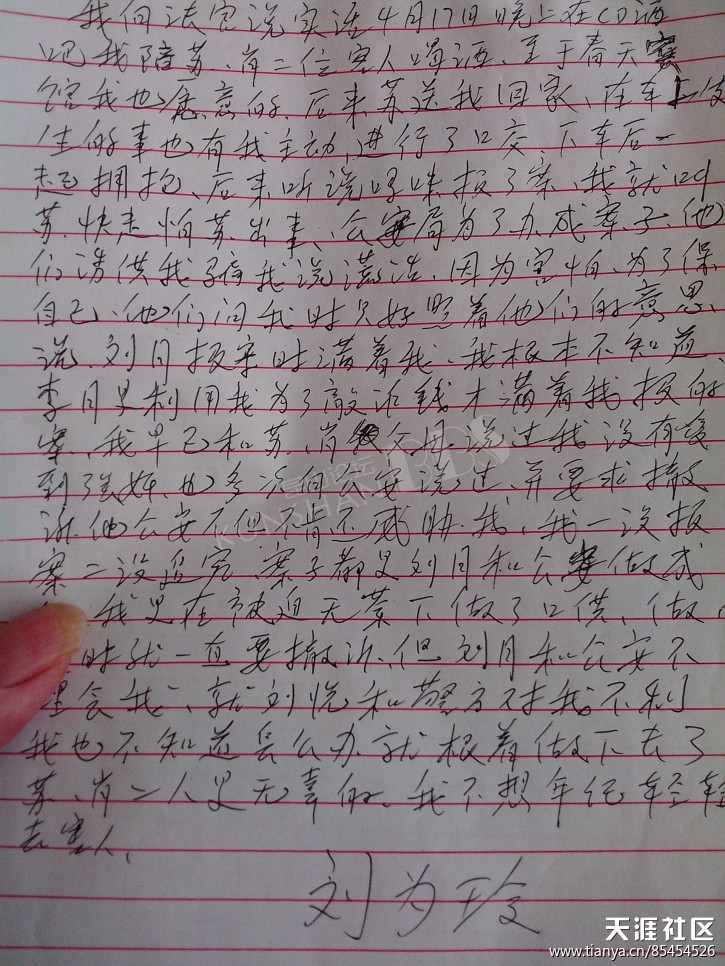 我向法官说实话4月17日晚上在CD酒
吧我陪苏、肖二位客人喝酒、至于春天宾
馆我也愿意的、后来苏送我回家、在车上发
生的事也有我主动、进行了口交、下车后一
起拥抱、后来听说妹报了案、我就叫
苏、快走怕苏出事、公安局为了办成案子、他
们诱供我我说谎话、因为害怕、为了保
自己、他们问我时只好照着他们的意思、
说、刘月报案时满着我、我根本不知道、
李月是利用我为了敲诈钱才满着我报的
案、我早已和苏、肖父母说过我没有受
到强奸、也多次向公安说过、并要求撤
诉、他公安不但不肯还威胁我、我一没报
案二没追究、案子都是刘月和公安做成
我是在被迫无业下做了口供、做
时就一直要撤诉、但刘月和公安不
理会我、就刘悦和警方对我不利
我也不知道怎么办就根着做下去了
苏、肖二人是无辜的、我不想年纪轻轻
去害人、
刘为玲
KUNSHAN BBS
天涯社区
www.tianya.cn/85454526